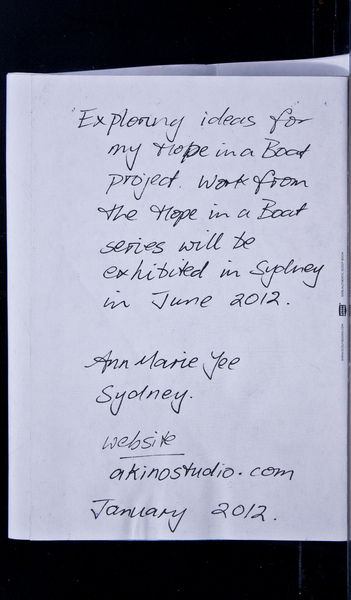 Exploring ideas for
my Hope in a Boat
project. Work from
the Hope in a Boat
series will be
exhibited in Sydney
in June 2012.
Ann Marie Yee
Sydney.
website
akinostudio.com
January 2012.